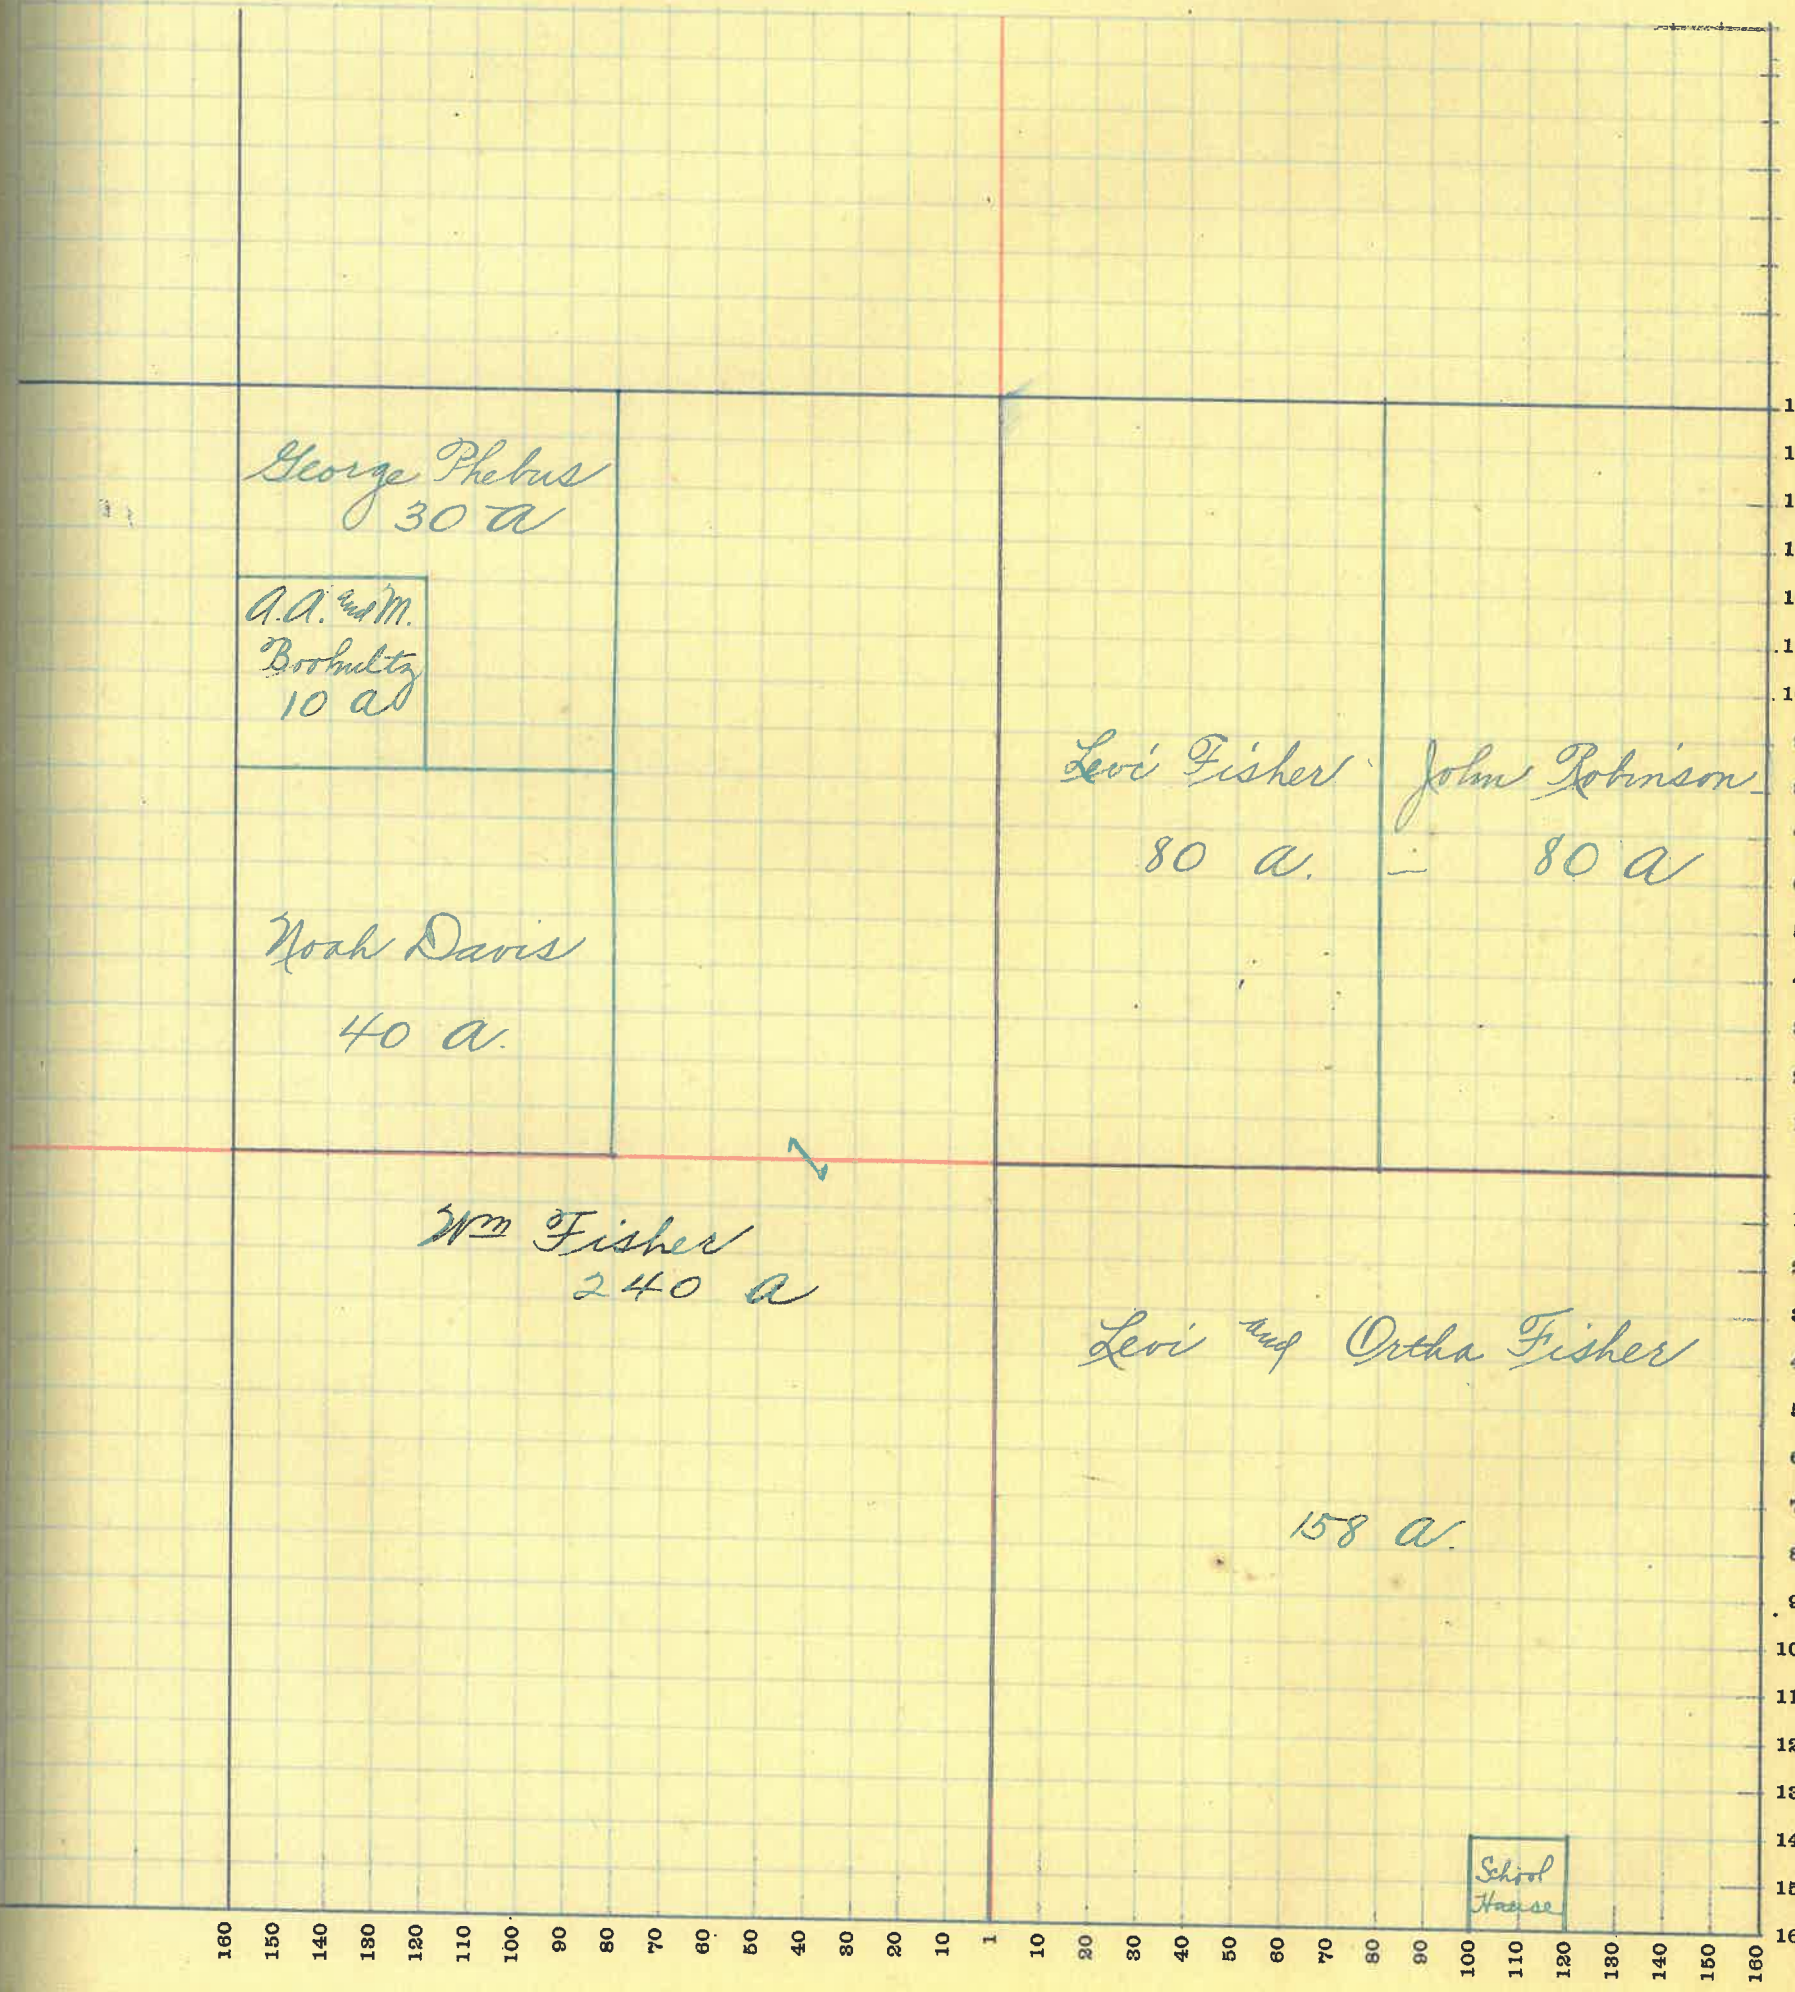 George Phebus
30 a
A.A. and M.
Boohultz
10 a
Levi Fisher
80 a.
John Robinson
80 a
Noah Davis
40 a.
Wm Fisher
240 a
Levi and Ortha Fisher
158 a.
School
House
10
11
12
13
14
15
16
160 150 140 130 120 110 100 90 80 70 60 50 40 30 20 10 1 10 20 30 40 50 60 70 80 90 100 110 120 130 140 150 160